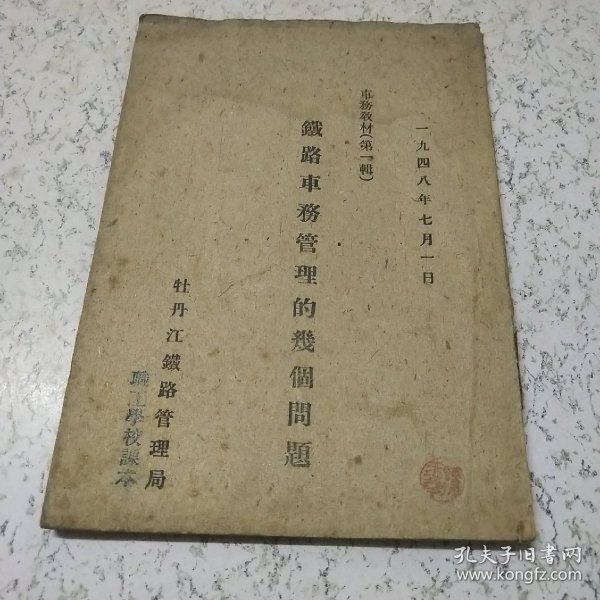 一九四八年七月一日
車務教材(第一輯)
鐵路車務管理的幾個問題
牡丹江鐵路管理局
職工學校課本
孔夫子旧书网
www.kongfz.com